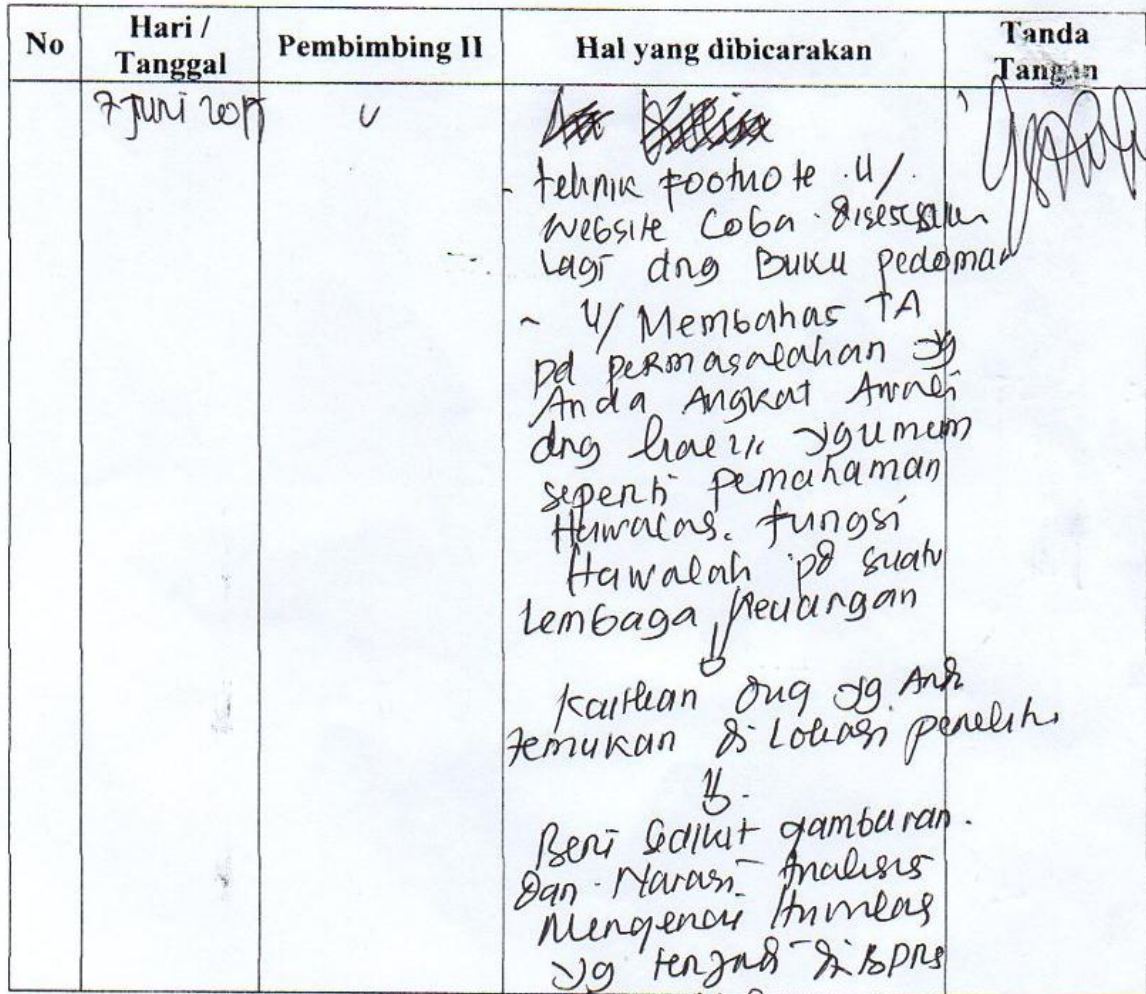 No
Hari /
Tanggal
Pembimbing II
Hal yang dibicarakan
Tanda
Tangan
7 Juni 2017
- tehnik footnote u/.
website Coba disesuaikan
lagi dng Buku pedoman
~ u/ Membahas TA
pd permasalahan yg
Anda Angkat Awali
dng yg umum
seperti Pemahaman
Hawalah. fungsi
Hawalah pd suatu
Lembaga Keuangan
Kaitkan dng yg Anda
temukan di Lokasi peneliti
Beri sedikit gambaran.
dan Narasi Analisis
Mengenai Hawalah
yg terjadi di BPRS